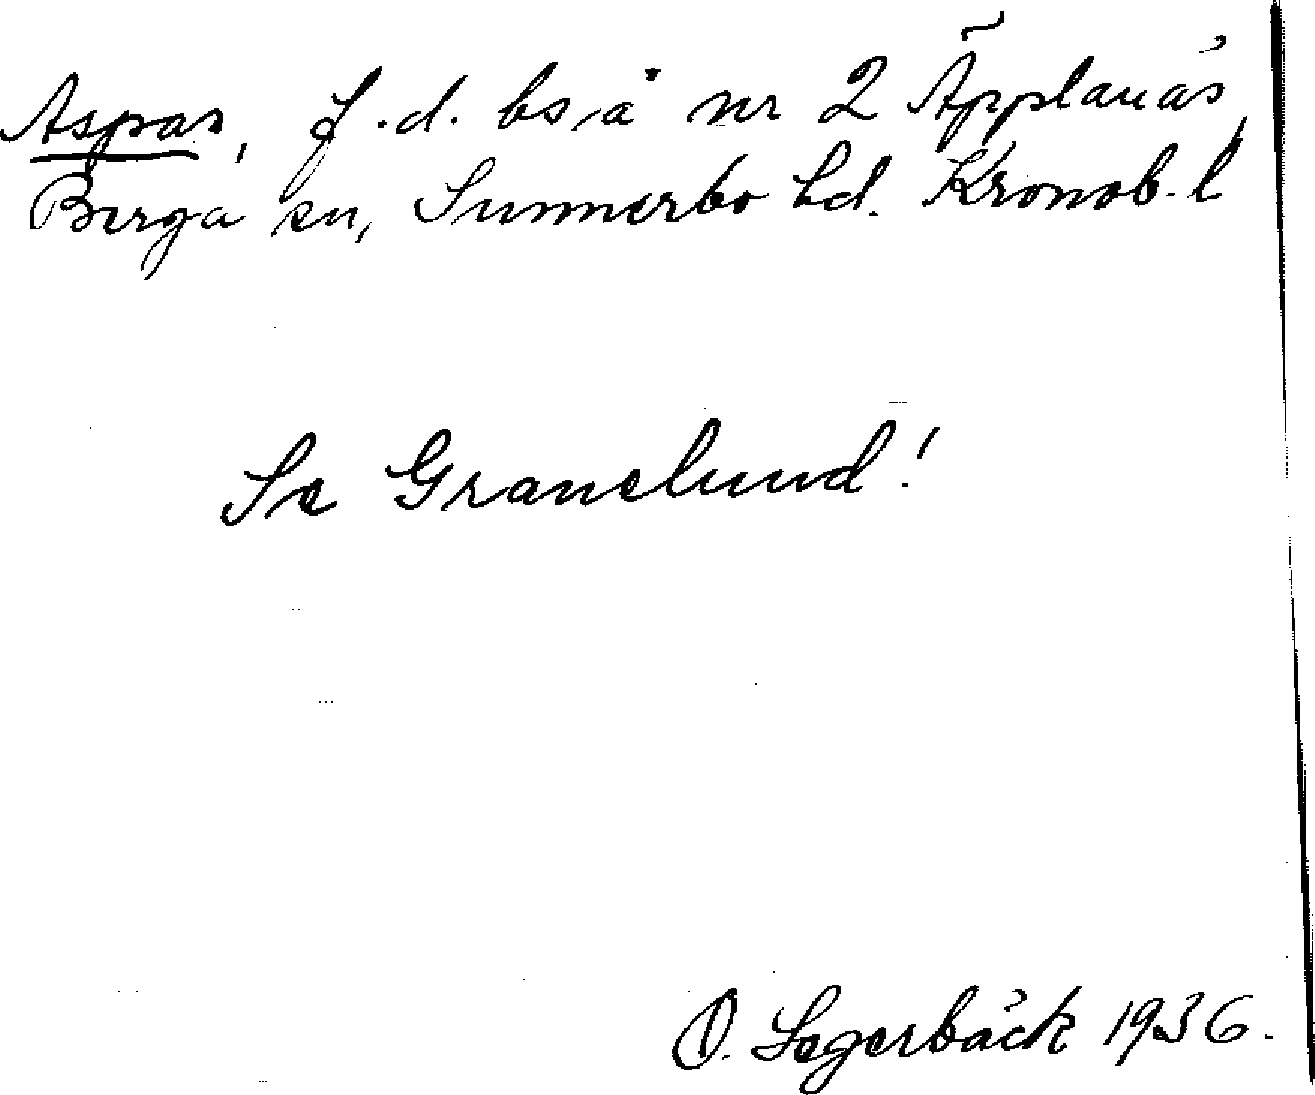 Aspar, f.d. bs å nr 2 Äpplanäs,
Berga sn, Sunnerbo hd. Kronob. l
Se Granelund!
O. Segerbäck 1936.